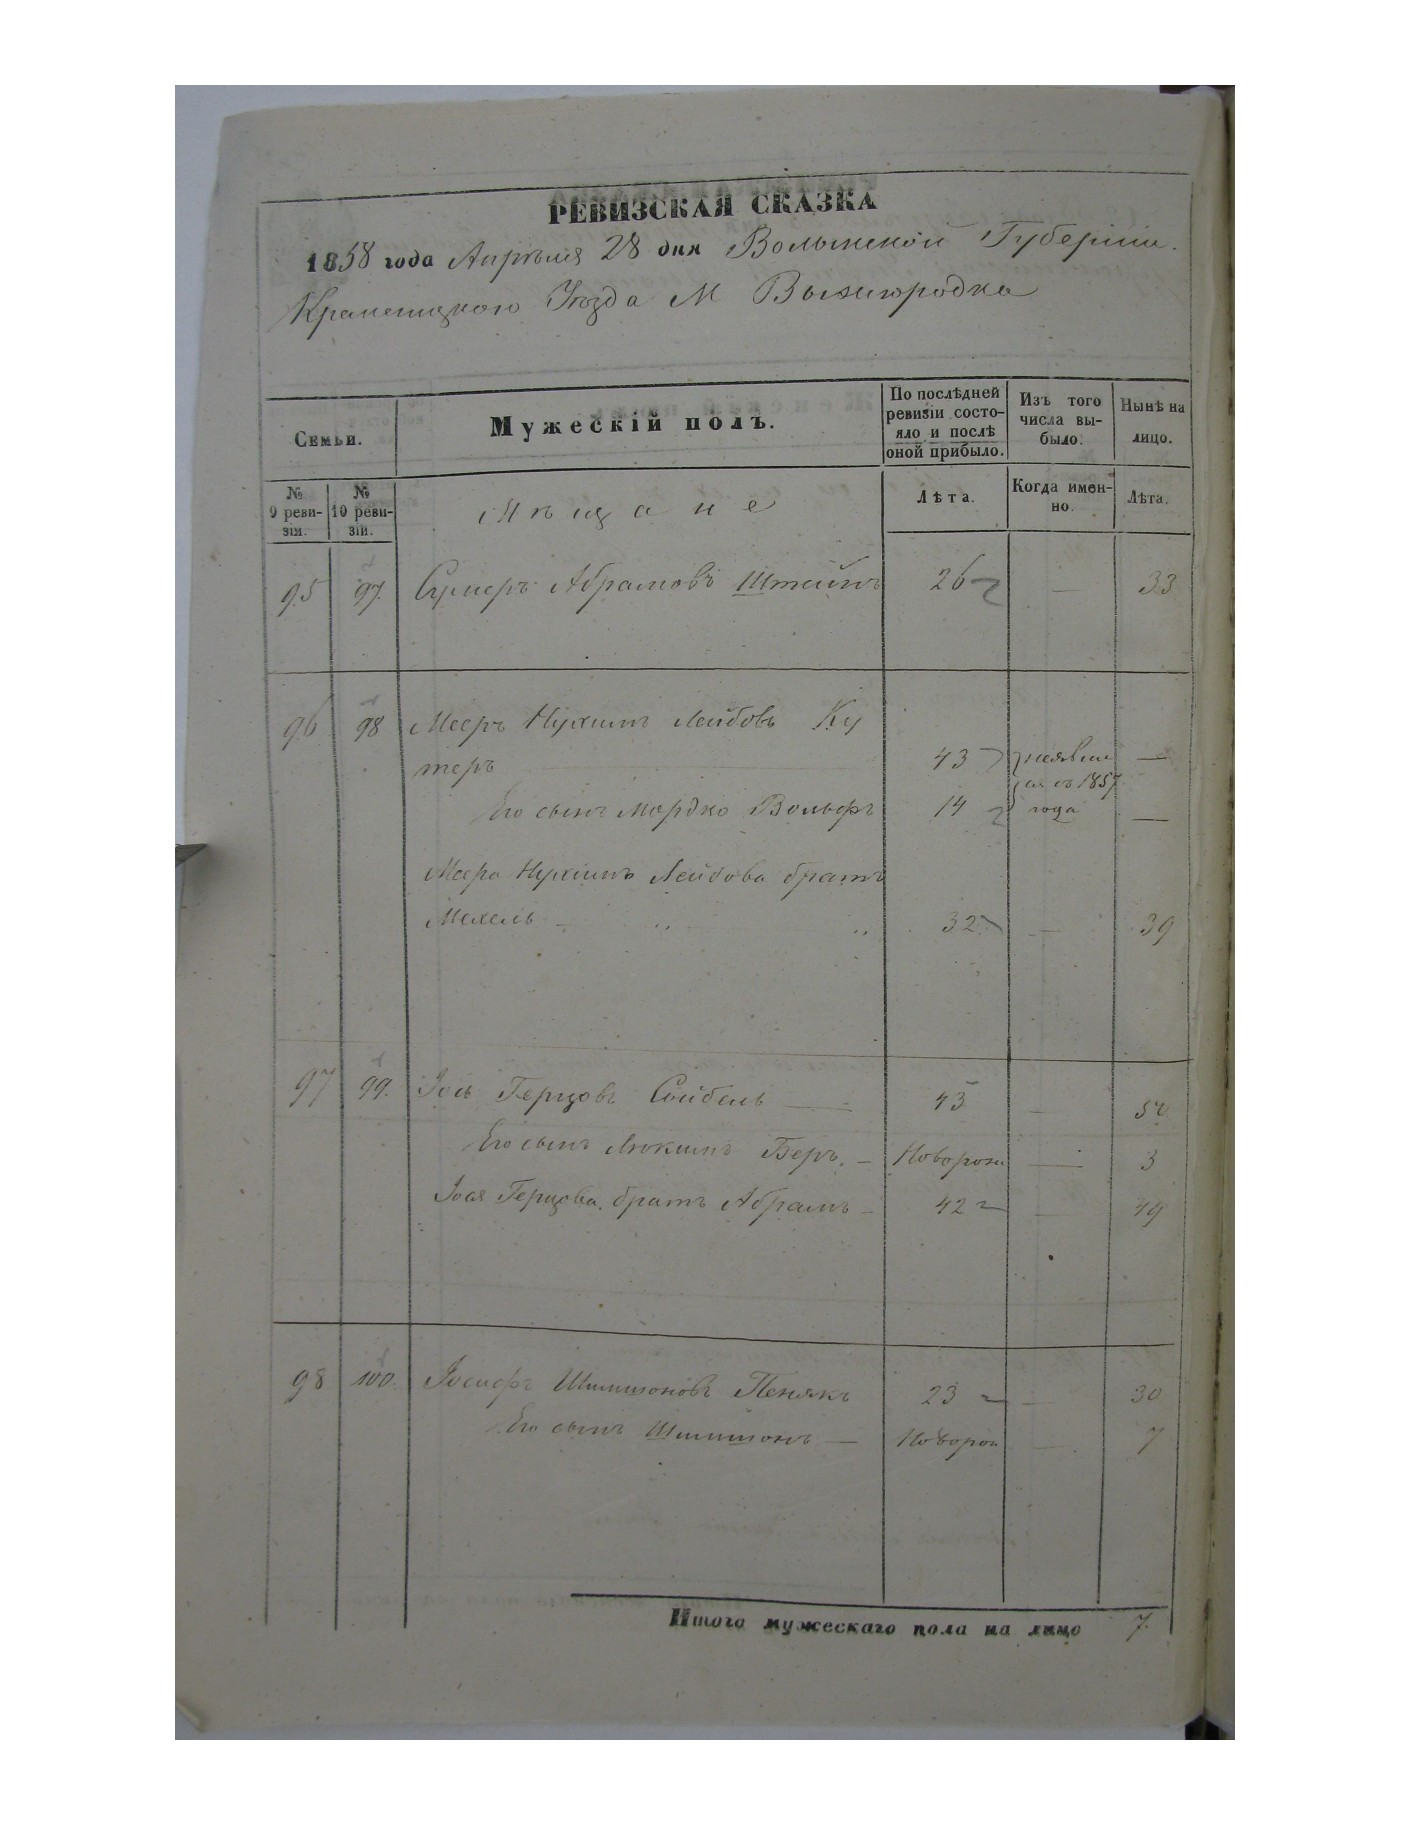 РЕВИЗСКАЯ СКАЗКА
1858 года Апрѣля 28 дня Волынской Губерніи.
Кременецкого Уѣзда М Вышгородка
Семьи.
Мужескій полъ.
По послѣдней ревизіи состо-
яло и послѣ
оной прибыло.
Изъ того
числа вы-
было.
Нынѣ на
лицо.
№
9 реви-
зіи.
№
10 реви-
зіи.
Мѣщане
Лѣта.
Когда имен-
но.
Лѣта.
95 97. Сумеръ Абрамовъ Штейнъ 26 — 33
96 98 Мееръ Нухимъ Лейбовъ Ку
теръ 43 неявля —
ся съ 1857
Его сынъ Мордко Вольфъ 14 года —
Меера Нухима Лейбова братъ
Мехель — „ „ 32 — 39
97 99. Іось Герцовъ Сойбель — 43 — 50
Его сынъ Бёръ. — Новорож — 3
Іося Герцова братъ Абрамъ — 42 — 49
98 100. Іосифъ Шимшоновъ Пенякъ 23 — 30
Его сынъ Шимшонъ — Новорож — 7
Итого мужескаго пола на лицо 7.